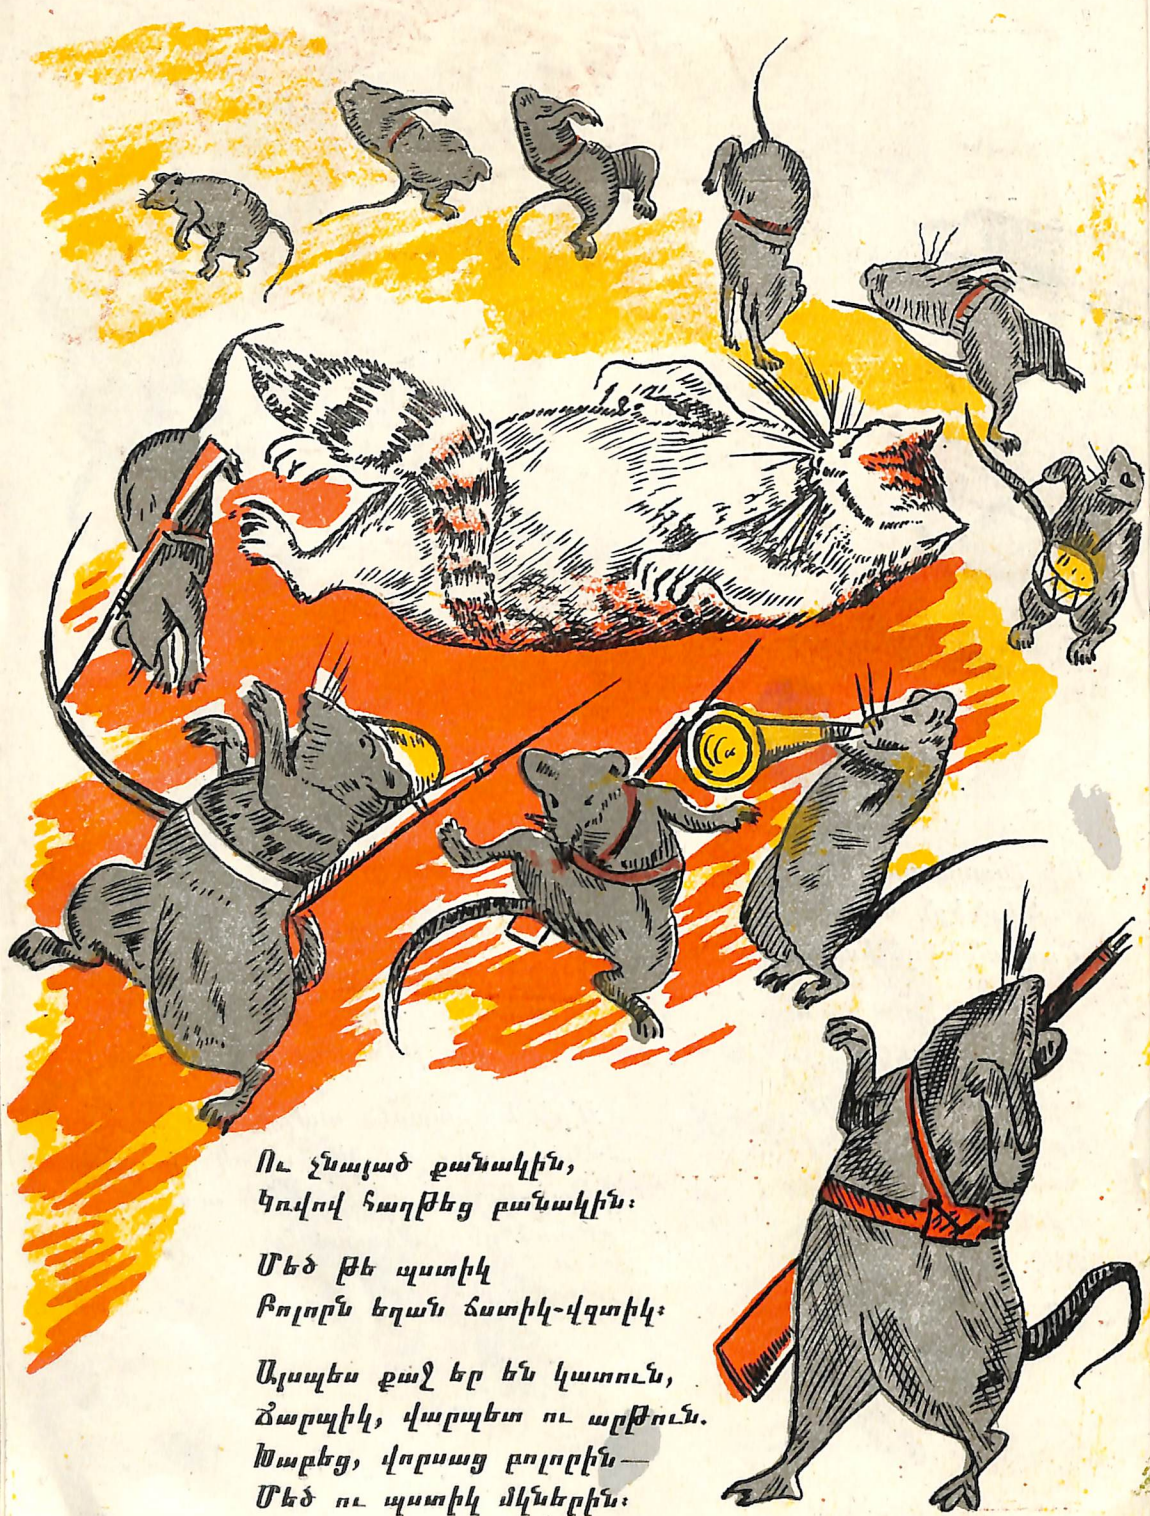 Ու չնայած քանակին,
Կռվով հաղթեց բանակին։
Մեծ թե պստիկ
Բոլորն եղան ճստիկ-վզտիկ։
Այսպես քաջ եր են կատուն,
Ճարպիկ, վարպետ ու արթուն.
Խաբեց, վորսաց բոլորին—
Մեծ ու պստիկ մկներին։